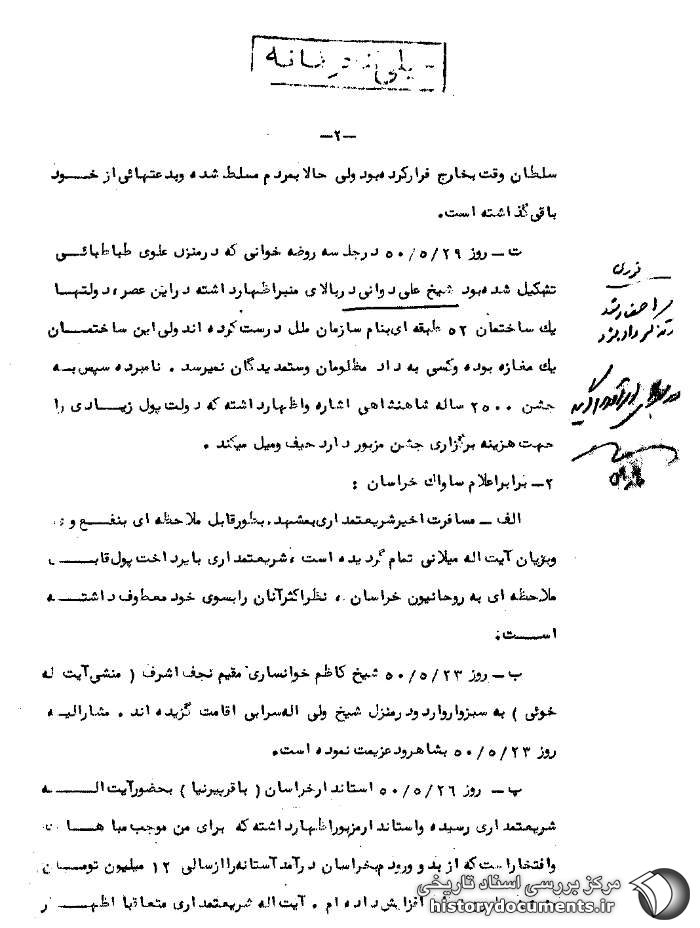 خیلی محرمانه
-۲-
سلطان وقت بخارج فرار کرده بود ولی حالا بمردم مسلط شده و بدعتهائی از خود
باقی گذاشته است.
ت - روز ۵۰/۵/۲۹ در جلسه روضه خوانی که در منزل علوی طباطبائی
تشکیل شده بود شیخ علی دوانی در بالای منبر اظهار داشته در این عصر، دولتها
یک ساختمان ۵۲ طبقه ای بنام سازمان ملل درست کرده اند ولی این ساختمان
یک مغازه بوده و کسی به داد مظلومان و ستمدیدگان نمیرسد. نامبرده سپس به
جشن ۲۵۰۰ ساله شاهنشاهی اشاره و اظهار داشته که دولت پول زیادی را
جهت هزینه برگزاری جشن مزبور دارد حیف و میل میکند.
۲- برابر اعلام ساواک خراسان :
الف - مسافرت اخیر شریعتمداری بمشهد، بطور قابل ملاحظه ای بنفع وی
وبزیان آیت اله میلانی تمام گردیده است، شریعتمداری با پرداخت پول قابل
ملاحظه ای به روحانیون خراسان، نظر اکثر آنان را بسوی خود معطوف داشته
است.
ب - روز ۵۰/۵/۲۳ شیخ کاظم خوانساری مقیم نجف اشرف ( منشی آیت اله
خوئی ) به سبزوار وارد و در منزل شیخ ولی اله سرابی اقامت گزیده اند. مشارالیه
روز ۵۰/۵/۲۳ بشاهرود عزیمت نموده است.
پ - روز ۵۰/۵/۲۶ استاندار خراسان ( باقر پیرنیا ) بحضور آیت اله
شریعتمداری رسیده و استاندار مزبور اظهار داشته که برای من موجب مباهات
و افتخار است که از بدو ورودم بخراسان درآمد آستانه را از سالی ۱۲ میلیون تومان
افزایش داده ام. آیت اله شریعتمداری متعاقبا اظهار
مرکز بررسی اسناد تاریخی
historydocuments.ir